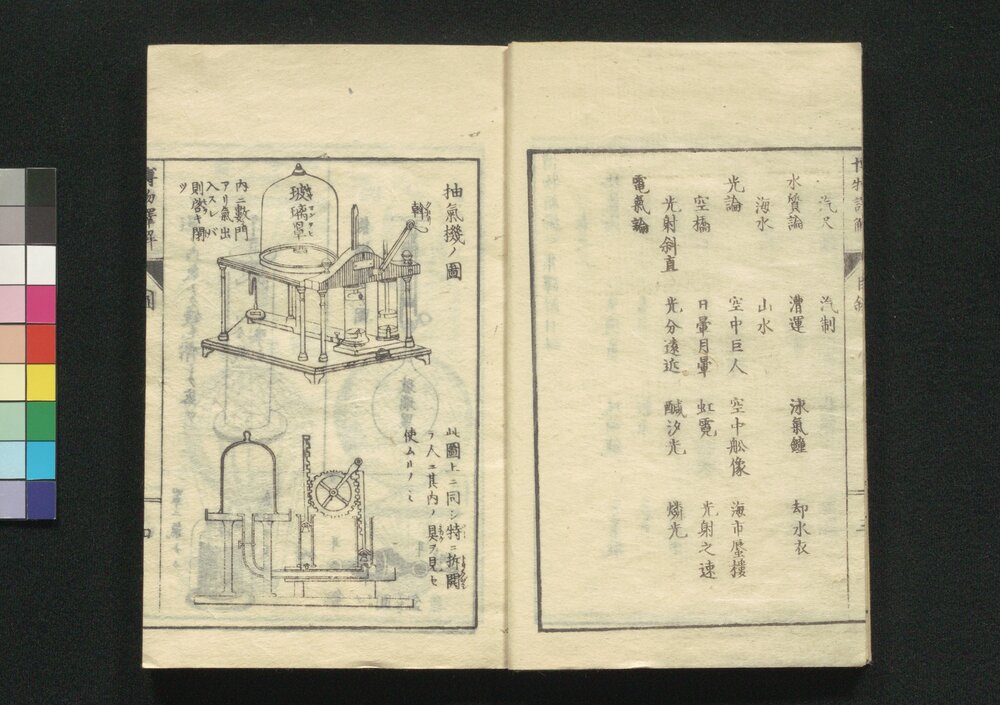 汽尺　汽制
水質論　漕運　泳氣鐘　却水衣
海水　山水
光論　空中巨人　空中舩像　海市蜃樓
空橋　日暈月暈　虹霓　光射之速
光射斜直　光分遠近　鹹汐光　燐光
電氣論
抽氣機ノ圖
玻璃罩
内ニ數門
アリ氣出
入スレバ
則啓キ閉
ツ
此圖上ニ同シ特ニ拆開
ヲ人ニ其内ノ具ヲ見セ
使ムルノミ